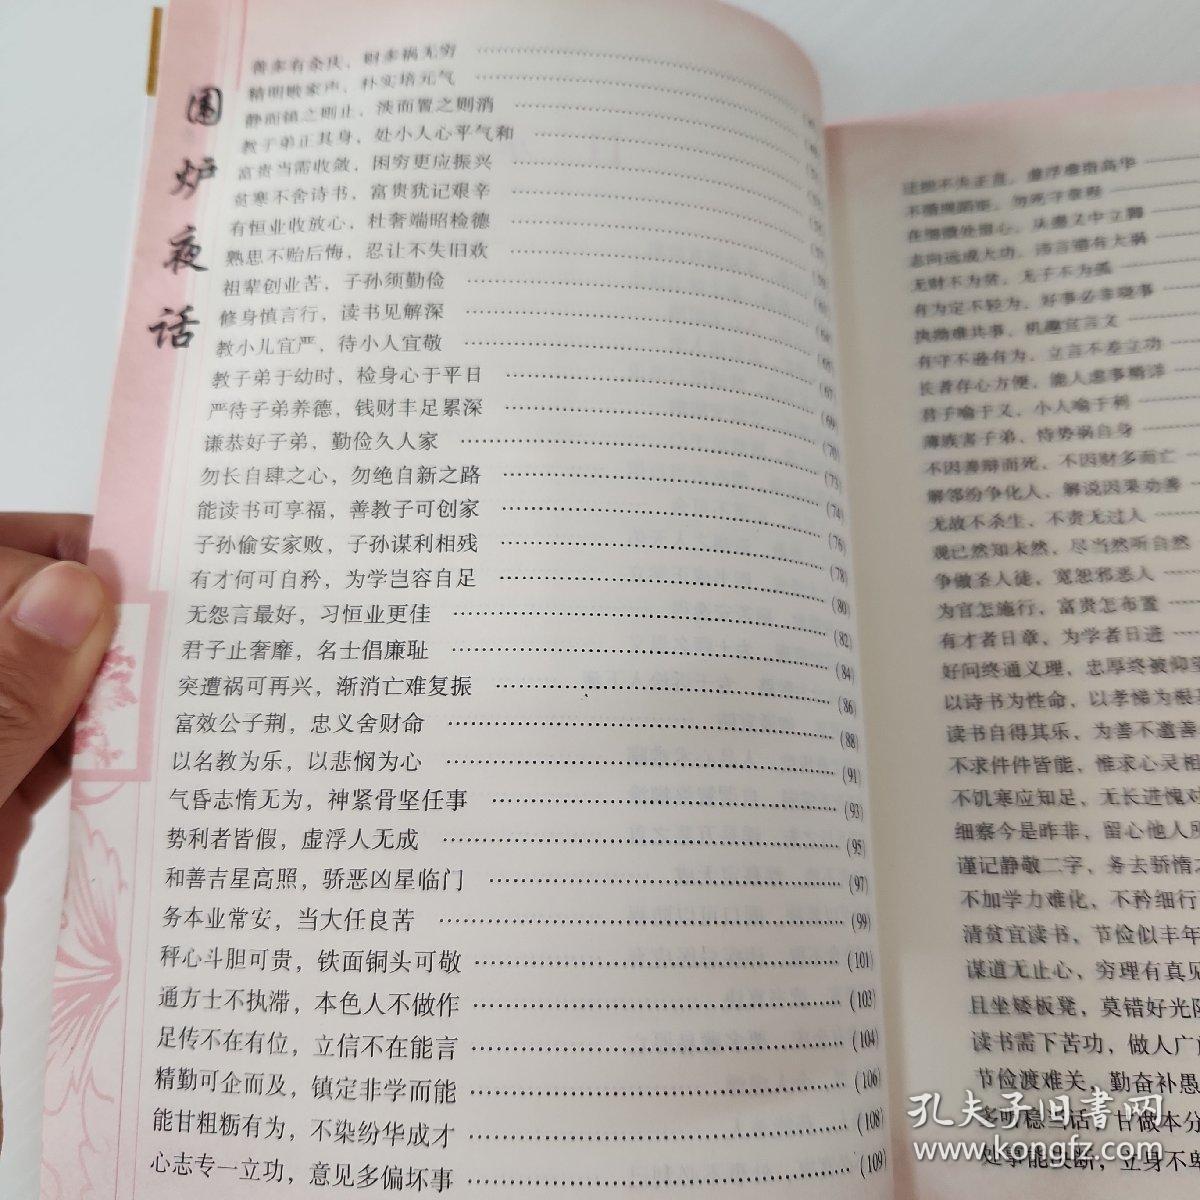 围炉夜话
善多有余庆，财多祸无穷
精明败家声，朴实培元气
静而镇之则止，淡而置之则消
教子弟正其身，处小人心平气和
富贵当需收敛，困穷更应振兴
贫寒不舍诗书，富贵犹记艰辛
有恒业收放心，杜奢端昭检德
熟思不贻后悔，忍让不失旧欢
祖辈创业苦，子孙须勤俭
修身慎言行，读书见解深
教小儿宜严，待小人宜敬
教子弟于幼时，检身心于平日 (67)
严待子弟养德，钱财丰足累深 (69)
谦恭好子弟，勤俭久人家 (70)
勿长自肆之心，勿绝自新之路 (73)
能读书可享福，善教子可创家 (74)
子孙偷安家败，子孙谋利相残 (76)
有才何可自矜，为学岂容自足 (78)
无怨言最好，习恒业更佳 (80)
君子止奢靡，名士倡廉耻 (82)
突遭祸可再兴，渐消亡难复振 (84)
富效公子荆，忠义舍财命 (86)
以名教为乐，以悲悯为心 (88)
气昏志惰无为，神紧骨坚任事 (91)
势利者皆假，虚浮人无成 (93)
和善吉星高照，骄恶凶星临门 (95)
务本业常安，当大任良苦 (97)
秤心斗胆可贵，铁面铜头可敬 (99)
通方士不执滞，本色人不做作 (101)
足传不在有位，立信不在能言 (103)
精勤可企而及，镇定非学而能 (104)
能甘粗粝有为，不染纷华成才 (106)
心志专一立功，意见多偏坏事 (108)
(109)
不循规蹈矩，勿死守章程
在细微处留心，从德义中立脚
志向远成大功，沛言错有大祸
无财不为贫，无子不为孤
有为定不轻为，好事必非晓事
执拗难共事，机趣宜言文
有守不逊有为，立言不差立功
长者存心方便，能人虑事精详
君子喻于义，小人喻于利
薄族害子弟，恃势祸自身
不因善辩而死，不因财多而亡
解邻纷争化人，解说因果劝善
无故不杀生，不责无过人
观已然知未然，尽当然听自然
争做圣人徒，宽恕邪恶人
为官怎施行，富贵怎布置
有才者日章，为学者日进
好问终通义理，忠厚终被仰望
以诗书为性命，以孝悌为根
读书自得其乐，为善不邀善
不求件件皆能，惟求心灵相
不饥寒应知足，无长进愧对
细察今是昨非，留心他人
谨记静敬二字，务去骄惰
不加学力难化，不矜细行
清贫宜读书，节俭似丰年
谋道无止心，穷理有真见
且坐矮板凳，莫错好光阴
读书需下苦功，做人广
节俭渡难关，勤奋补愚
多听稳当话，甘做本分
处事能决断，立身不卑
孔夫子旧书网
www.kongfz.com